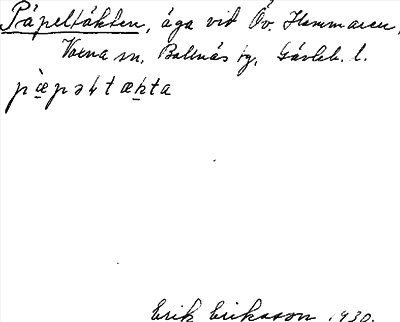 Päpeltäkten, äga vid Öv. Hammaren,
Voxna sn, Bollnäs tg, Gävleb. l.
pæpəltækta
Erik Eriksson 1930.